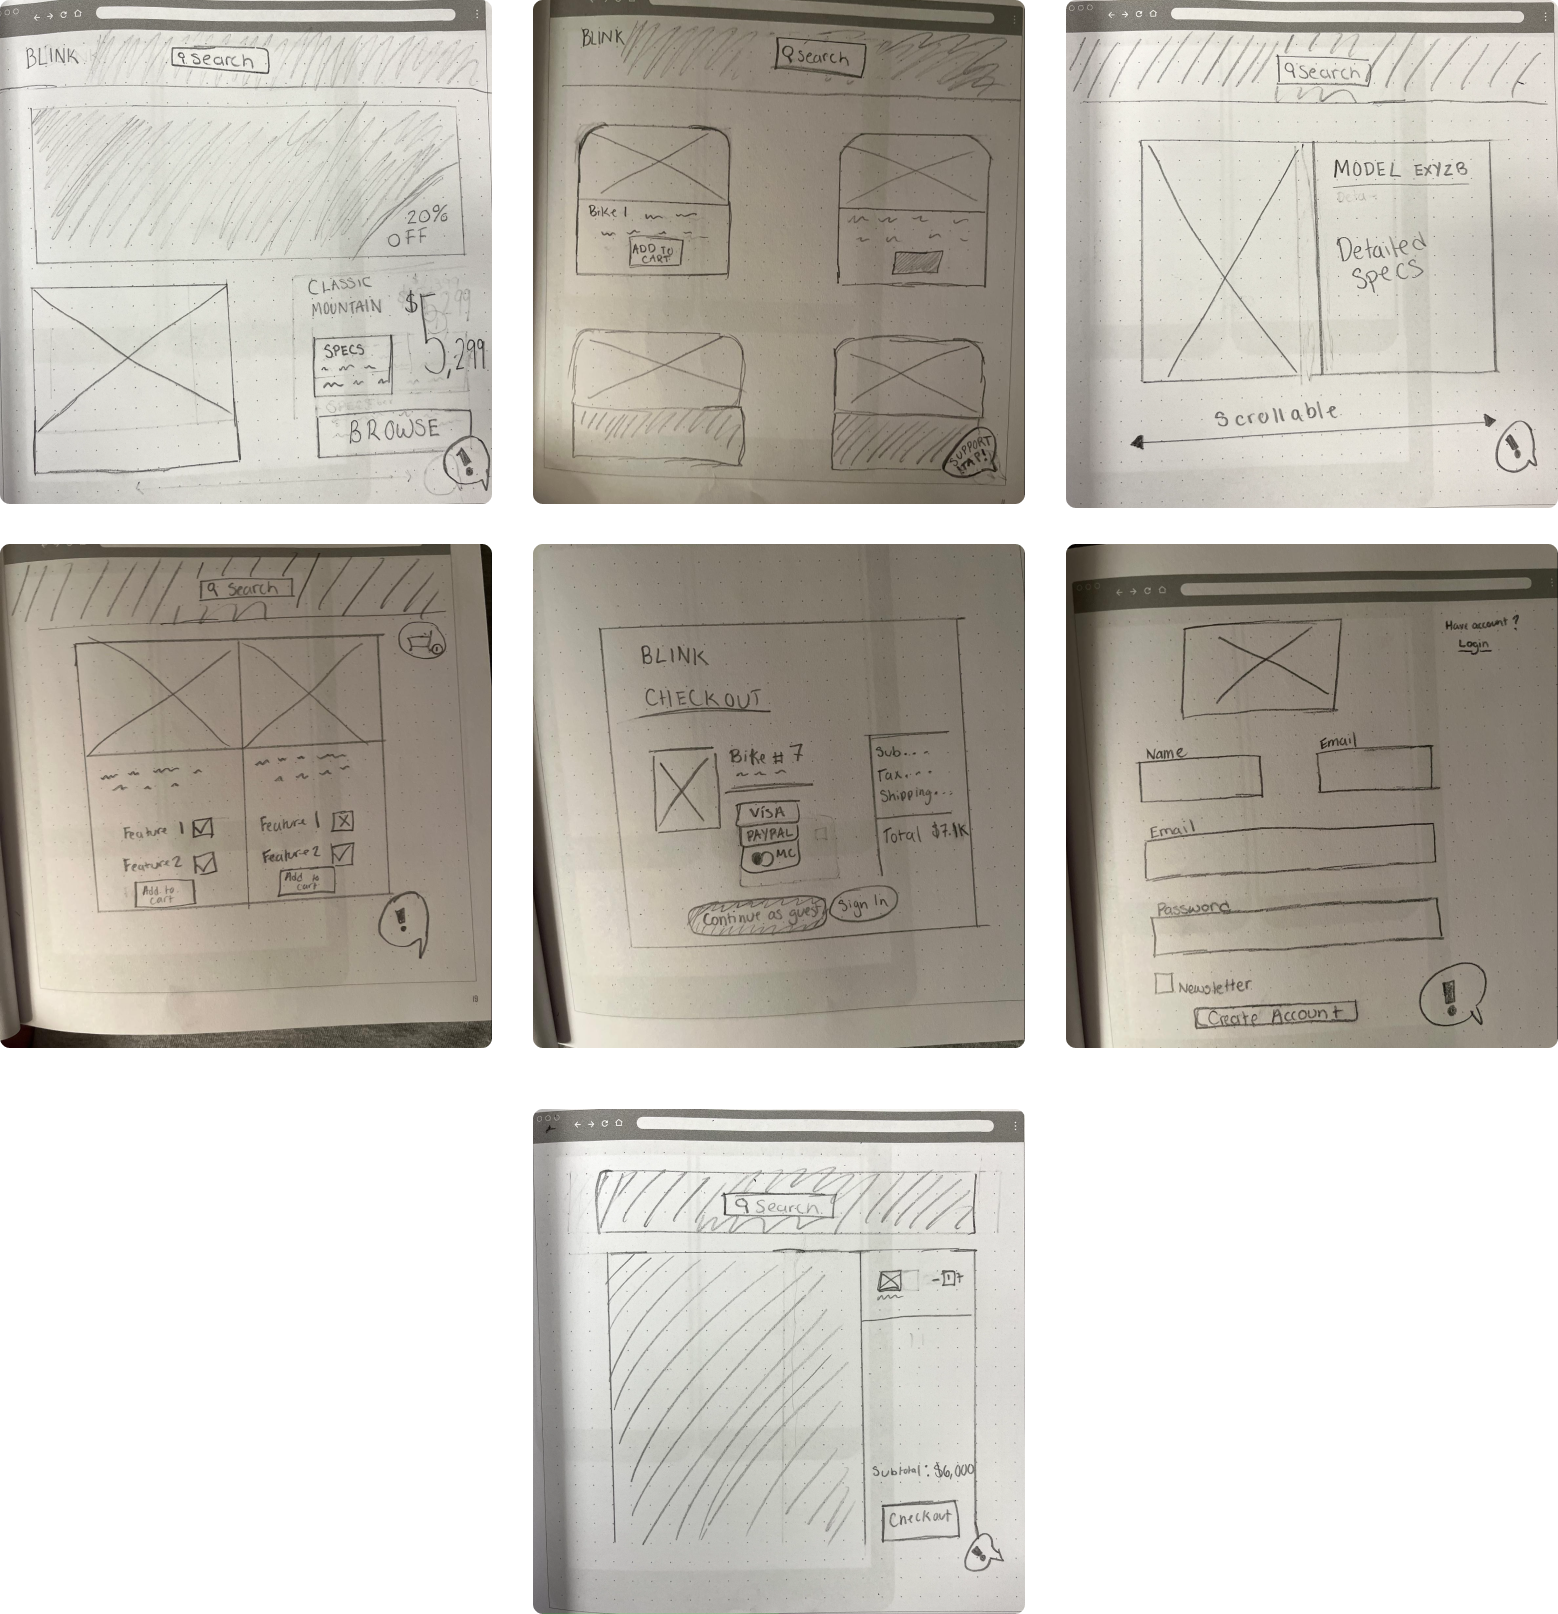 BLINK
Search
20%
OFF
CLASSIC
MOUNTAIN
$5,299
SPECS
BROWSE
!
BLINK
Search
Bike 1
ADD TO
CART
SUPPORT
TAP!
Search
MODEL EXYZB
Detailed
Specs
Scrollable
!
Search
Feature 1
Feature 1
Feature 2
Feature 2
Add to
cart
Add to
cart
!
BLINK
CHECKOUT
Bike # 7
VISA
PAYPAL
MC
Sub...
Tax...
Shipping...
Total $7.1K
Continue as guest
Sign In
Have account?
Login
Name
Email
Email
Password
Newsletter
Create Account
!
Search
Subtotal: $6,000
Checkout
!